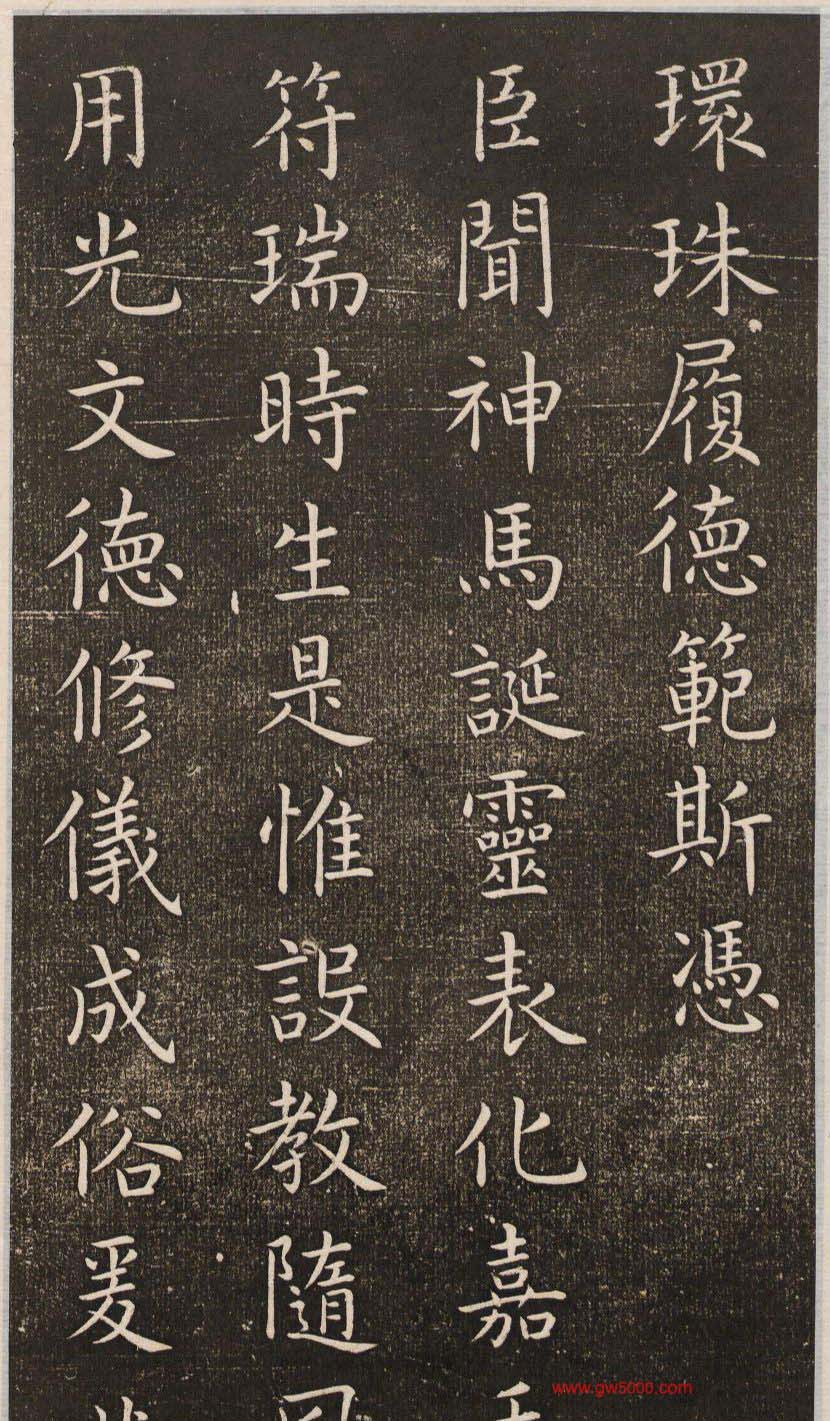 環珠履德範斯憑
臣聞神馬誕靈表化嘉
符瑞時生是惟設教隨
用光文德修儀成俗爰
www.gw5000.com